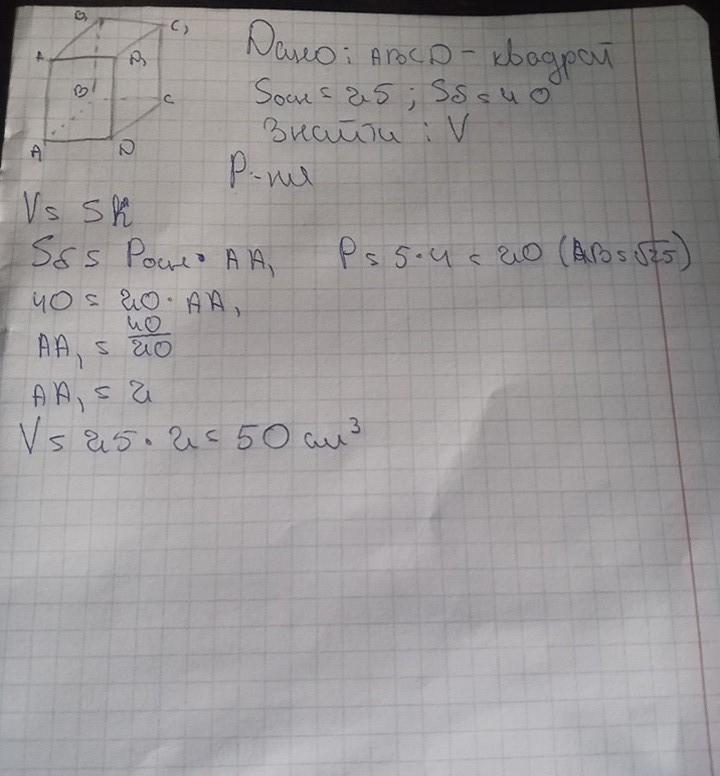 B₁ C₁
A₁ D₁
B C
A D
Дано: ABCD - квадрат
Sосн = 25; Sб = 40
Знайти: V
Р-ня
V = Sh
Sб = Pосн · AA₁ P = 5·4 = 20 (AB = √25)
40 = 20 · AA₁
AA₁ = 40/20
AA₁ = 2
V = 25 · 2 = 50 см³